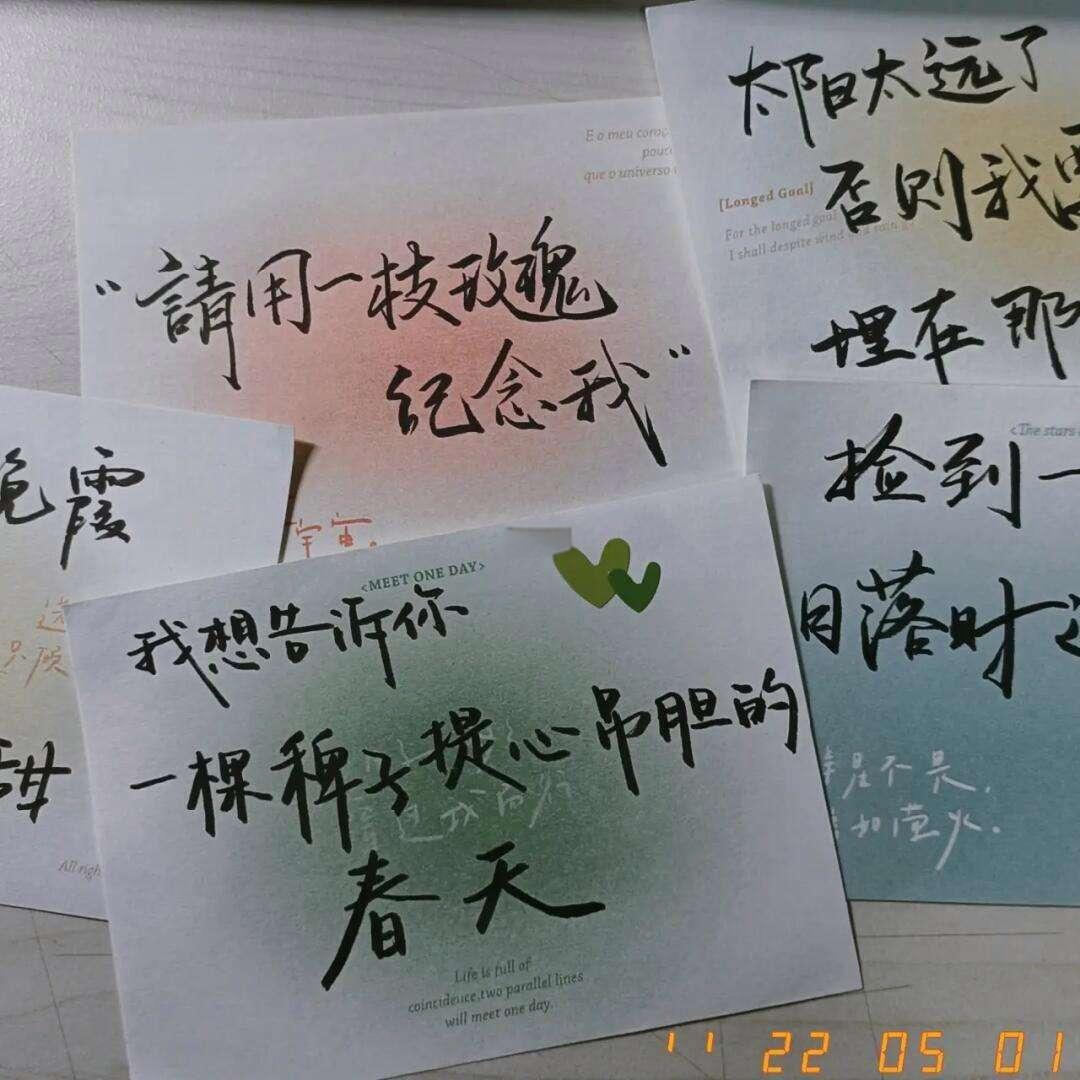 E o meu coraç
pouc
que o universo
“請用一枝玫瑰
纪念我”
宇宙.
太阳太远了
否则我要
[Longed Goal]
For the longed goal
I shall despite wind and rain g
埋在那
晚霞
甜
All righ
<The stars
捡到一
日落时
星不是,
如萤火.
<MEET ONE DAY>
我想告诉你
一棵稗子提心吊胆的
春天
Life is full of
coincidence,two parallel lines
will meet one day.
'' 22 05 01